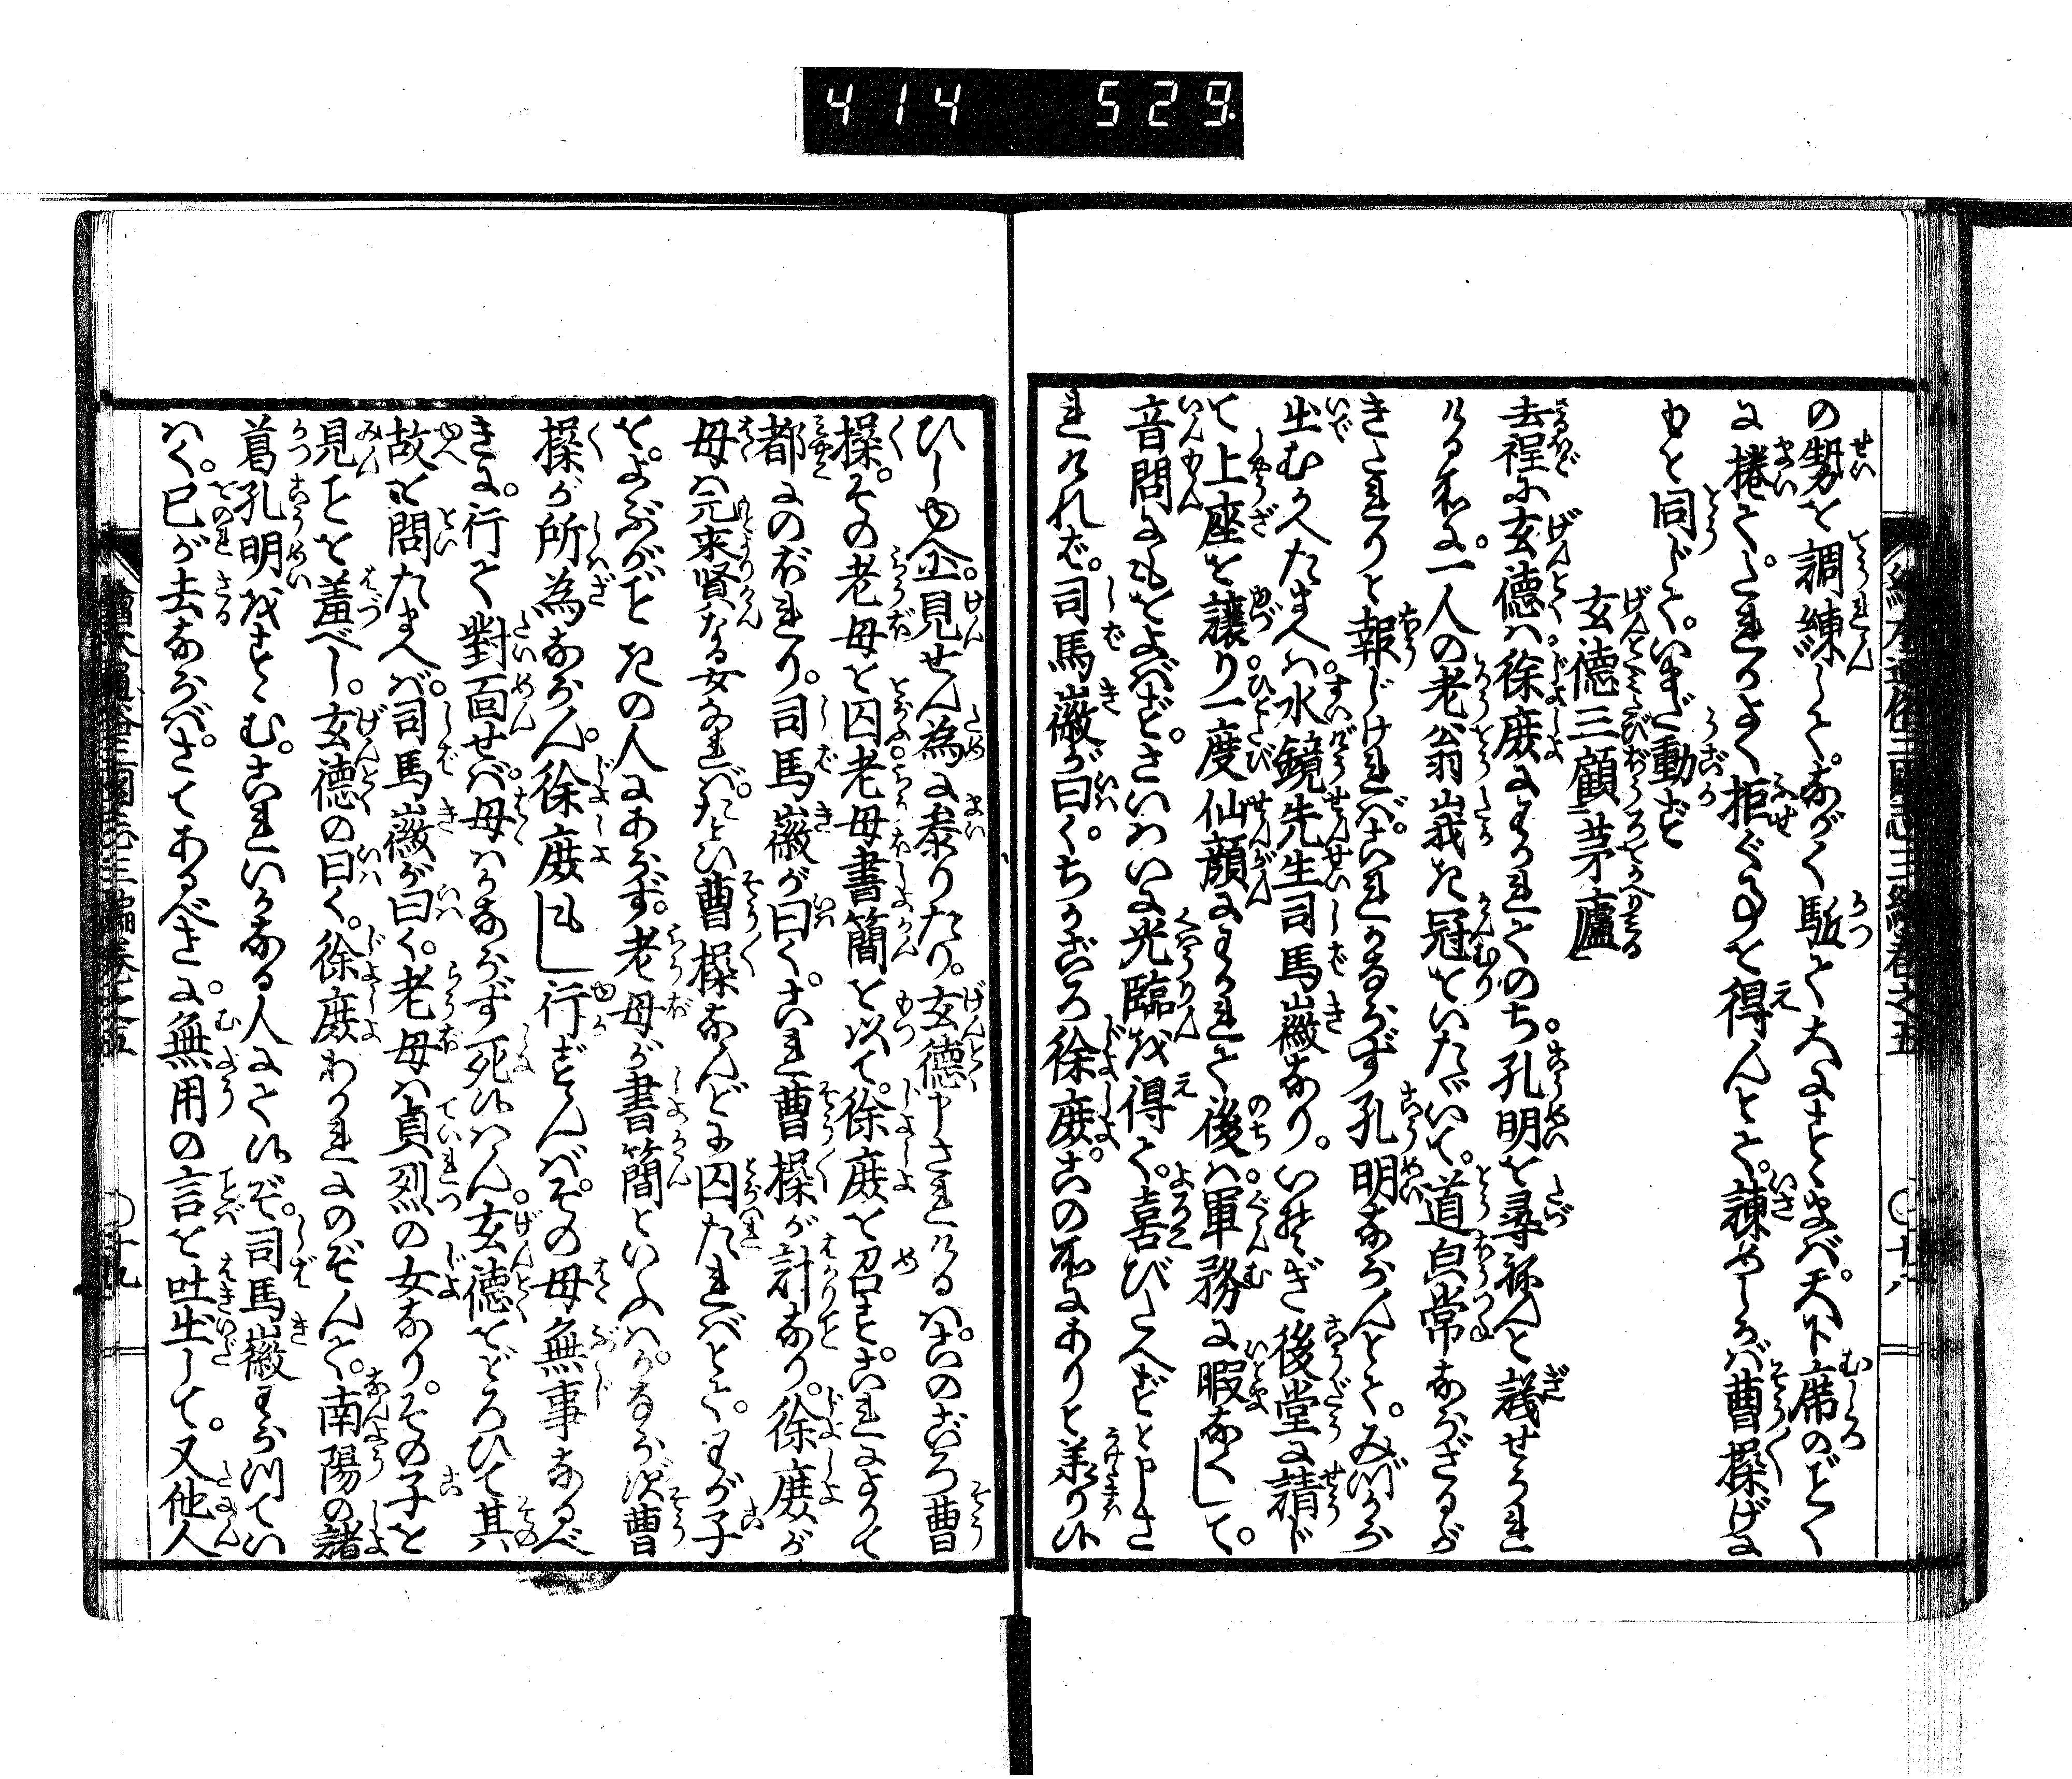 414 529
の勢を調練して。ながく駈て大にすゝまば。天下席のごとく
に捲て。たれかよく拒ぐ事を得んとて。諫めしが曹操げに
もと同じて。いまだ動ず
玄徳三顧茅廬
去程に玄徳は。徐庶にわかれてのち。孔明を尋ねんと議せられ
ける所に。一人の老翁峩たる冠をいたゞいて。道㒵常ならざるが
きたれりと報じければ。これかならず孔明ならんとて。みづから
出むかへたまへば。水鏡先生司馬徽なり。いそぎ後堂に請じ
て上座を譲り一度仙顔にわかれて後は。軍務に暇なくして。
音問にもをよばず。さいはいに光臨を得て。喜びたへずと申さ
れければ。司馬徽が曰く。ちかごろ徐庶。この所にありと承り候
ひしゆへ。見せん為に参りたり。玄徳申されけるは。このごろ曹
操。その老母を囚老母書簡を以て。徐庶を召す。これによつて
都にのぼれり。司馬徽が曰く。これ曹操が計なり。徐庶が
母は元来賢なる女なれば。たとひ曹操なんどに囚たればとて。わが子
を。よぶがごときの人にあらず。老母が書簡といふは。かならず曹
操が所為ならん。徐庶もし行ずんば。その母無事なるべ
きに。行て對面せば。母はかならず死候はん。玄徳をどろひて其
故を問たまへば。司馬徽が曰く。老母は貞烈の女なり。その子を
見ことを羞べし。玄徳の曰く。徐庶わかれにのぞんで。南陽の諸
葛孔明をすゝむ。これいかなる人にて候ぞ。司馬徽わらつてい
はく。己が去ならば。さてあるべきに。無用の言を吐出して。又他人